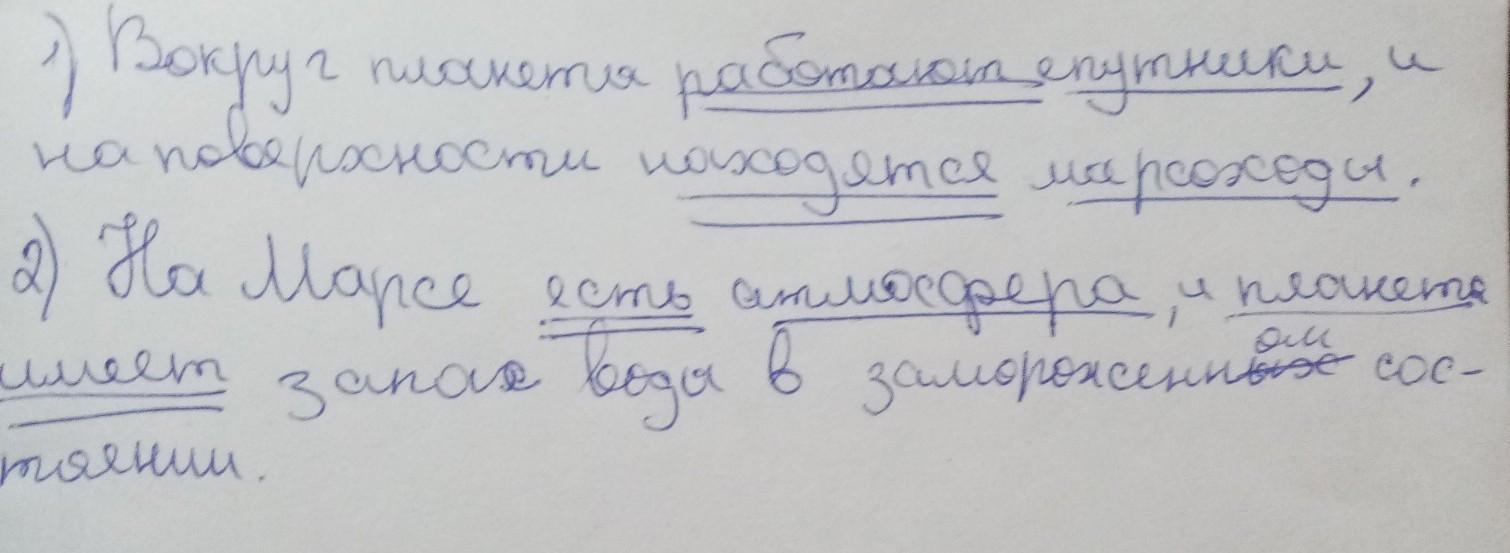 1) Вокруг планеты работают спутники, и
на поверхности находятся марсоходы.
2) На Марсе есть атмосфера, и планета
имеет запас воды в замороженном сос-
тоянии.